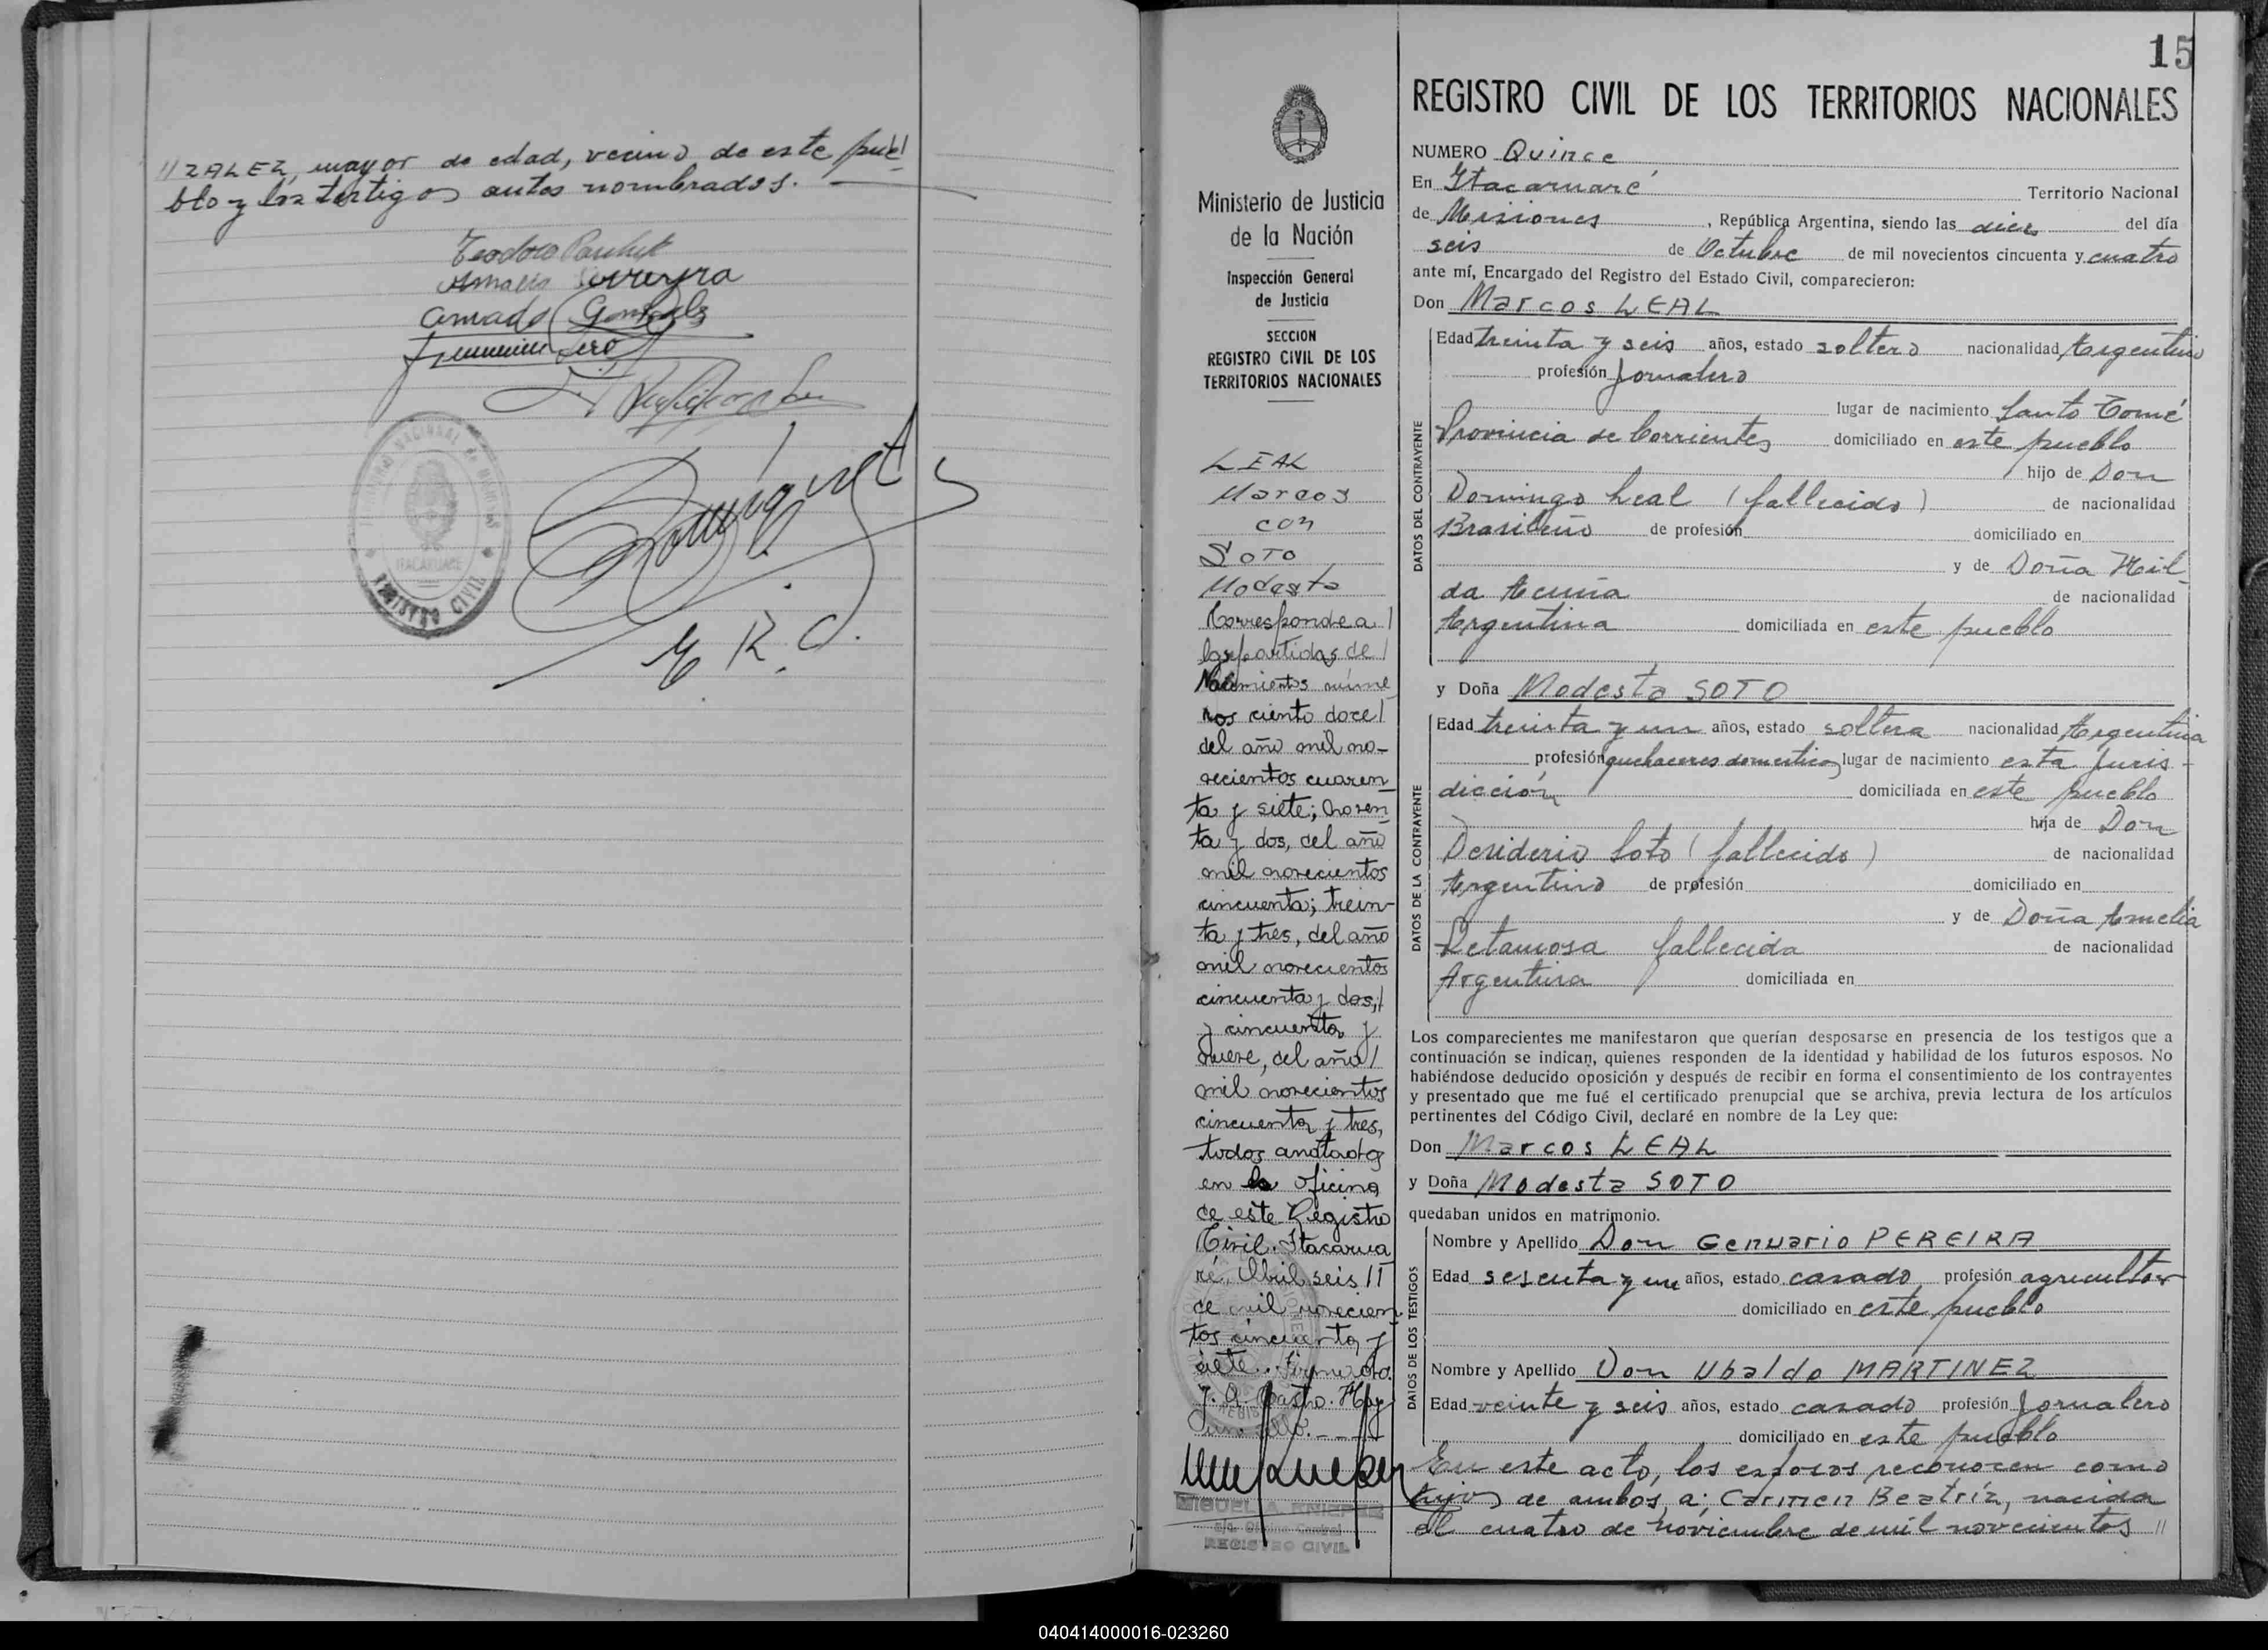 //ZALEZ, mayor de edad, vecino de este pue/
blo y los testigos antes nombrados.
Amado Gonzalez
E. R. C.
REGISTRO CIVIL
ITACARUARE
15
Ministerio de Justicia
de la Nación
Inspección General
de Justicia
SECCION
REGISTRO CIVIL DE LOS
TERRITORIOS NACIONALES
LEAL
Marcos
con
SOTO
Modesta
Corresponde a /
las partidas de /
Nacimientos núme
ros ciento doce /
del año mil no-
vecientos cuaren
ta y siete; noven
ta y dos, del año
mil novecientos
cincuenta; trein-
ta y tres, del año
mil novecientos
cincuenta y dos, /
y cincuenta y
nueve, del año /
mil novecientos
cincuenta y tres,
todos anotados
en la oficina
de este Registro
Civil. Itacarua
ré, Abril seis //
de mil novecien
tos cincuenta y
siete. Firmado.
J. A. Castro. Hay
un sello.
MIGUEL A.
Oficina Central
REGISTRO CIVIL
REGISTRO CIVIL DE LOS TERRITORIOS NACIONALES
NUMERO Quince
En Itacaruaré Territorio Nacional
de Misiones, República Argentina, siendo las diez del día
seis de Octubre de mil novecientos cincuenta y cuatro
ante mí, Encargado del Registro del Estado Civil, comparecieron:
Don Marcos LEAL
DATOS DEL CONTRAYENTE
Edad treinta y seis años, estado soltero nacionalidad Argentino
profesión Jornalero
lugar de nacimiento Santo Tomé
Provincia de Corrientes domiciliado en este pueblo
hijo de Don
Domingo Leal (fallecido) de nacionalidad
Brasileño de profesión domiciliado en
y de Doña Hil
da Acuña de nacionalidad
Argentina domiciliada en este pueblo
y Doña Modesta SOTO
DATOS DE LA CONTRAYENTE
Edad treinta y un años, estado soltera nacionalidad Argentina
profesión quehaceres domesticos lugar de nacimiento esta Juris-
dicción domiciliada en este pueblo
hija de Don
Desiderio Soto (fallecido) de nacionalidad
Argentino de profesión domiciliado en
y de Doña Amelia
Retamosa fallecida de nacionalidad
Argentina domiciliada en
Los comparecientes me manifestaron que querían desposarse en presencia de los testigos que a
continuación se indican, quienes responden de la identidad y habilidad de los futuros esposos. No
habiéndose deducido oposición y después de recibir en forma el consentimiento de los contrayentes
y presentado que me fué el certificado prenupcial que se archiva, previa lectura de los artículos
pertinentes del Código Civil, declaré en nombre de la Ley que:
Don Marcos LEAL
y Doña Modesta SOTO
quedaban unidos en matrimonio.
DATOS DE LOS TESTIGOS
Nombre y Apellido Don Genuario PEREIRA
Edad sesenta y un años, estado casado profesión agricultor
domiciliado en este pueblo
Nombre y Apellido Don Ubaldo MARTINEZ
Edad veinte y seis años, estado casado profesión Jornalero
domiciliado en este pueblo
En este acto, los esposos reconocen como
hijos de ambos, a; Carmen Beatríz, nacida
el cuatro de noviembre de mil novecientos //
040414000016-023260